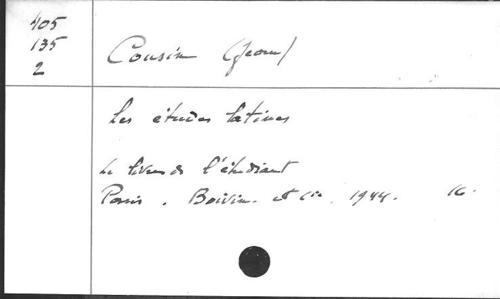 405
135
2
Cousin (Jean)
Les études latines
Le livre de l'étudiant
Paris. Boivin. et Cie, 1944. 16.